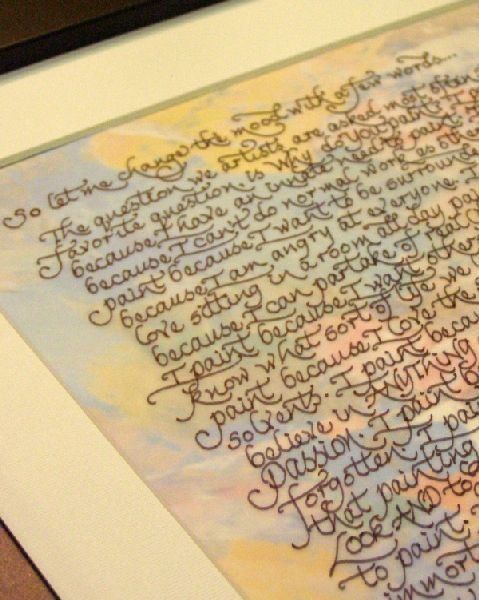 So let me change the mood with a few words...
The question we artists are asked most often
favorite question, is Why do you paint? I
because I have an innate need to paint. I
because I can't do normal work as other
paint because I want to be surrounde
because I am angry at everyone. I
love sitting in a room all day pai
because I can partake of real
I paint because I want others
know what sort of life we
paint because I love the s
solvents. I paint becau
believe in ANYTHING
Passion. I paint b
Forgotten. I pain
that painting
Look AND to
to paint.
immort